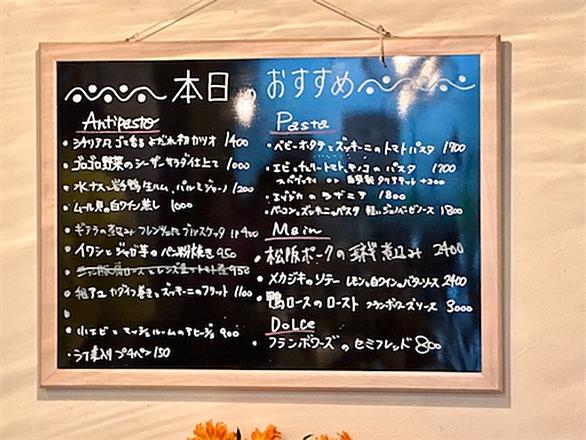 本日のおすすめ
Antipasto
香る よだれ初カツオ 1400
ゴロゴロ野菜のシーザーサラダ仕立て 1000
水ナスと 生ハム、パルミジャーノ 1200
ムール貝の白ワイン蒸し 1000
ギアラの煮込み フレンツェ ブルスケッタ 1400
イワシとジャガ芋のパン粉焼き 950
950
稚アユ カダイフ巻きとズッキーニのフリット 1100
小エビとマッシュルームのアヒージョ 900
煮入り プチパン 150
Pasta
ベビーホタテとズッキーニのトマトパスタ 1700
エビとチェリートマト、キノコのパスタ 1700
スパゲッティ or 自家製タリアテッレ +300
ラザニア 1800
ベーコンとズッキーニのパスタ 軽いジェノベーゼソース 1800
Main
松阪ポークの 煮込み 2400
メカジキのソテー レモンと白ワインのバターソース 2400
鴨ロースのロースト フランボワーズソース 3000
Dolce
フランボワーズのセミフレッド 800